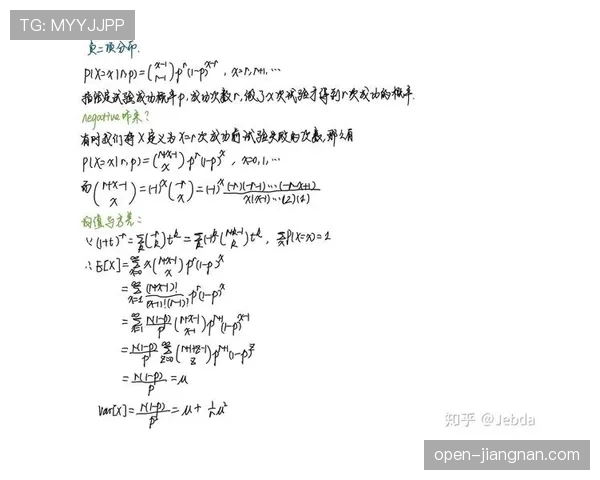 TG: MYYJJPP
负二项分布.
P(X=x|r,p)=(x-1 r-1) p^r (1-p)^{x-r}, x=r,r+1,⋯
指给定试验成功概率p,成功次数r,做了x次试验才得到r次成功的概率.
negative 咋来?
有时我们将X定义为X=r次成功前试验失败的次数,那么有
P(X=x|r,p)=(r+x-1 x) p^r (1-p)^x, x=0,1,⋯
而(r+x-1 x)=(-1)^x(-r x)=(-1)^x (-r)(-r-1)⋯(-r-x+1)/x(x-1)⋯(2)(1)
均值与方差:
∵(1+t)^{-r}=Σ_k(-r k)t^k=Σ_k(-1)^k(r+k-1 k)t^k, Σ_x P(X=x)=1
∴E[X]=Σ_{x=0}^∞ x(r+x-1 x) p^r (1-p)^x
=Σ_{x=1}^∞ (r+x-1)!/(x-1)!(r-1)! p^r (1-p)^x
=Σ_{x=1}^∞ r(1-p)/p (r+x-1 x-1) p^{r+1} (1-p)^{x-1}
=r(1-p)/p Σ_{z=0}^∞ (r+1+z-1 z) p^{r+1} (1-p)^z
=r(1-p)/p=μ
Var[X]=r(1-p)/p²=μ+1/r μ²
知乎 @Jebda
open-jiangnan.com